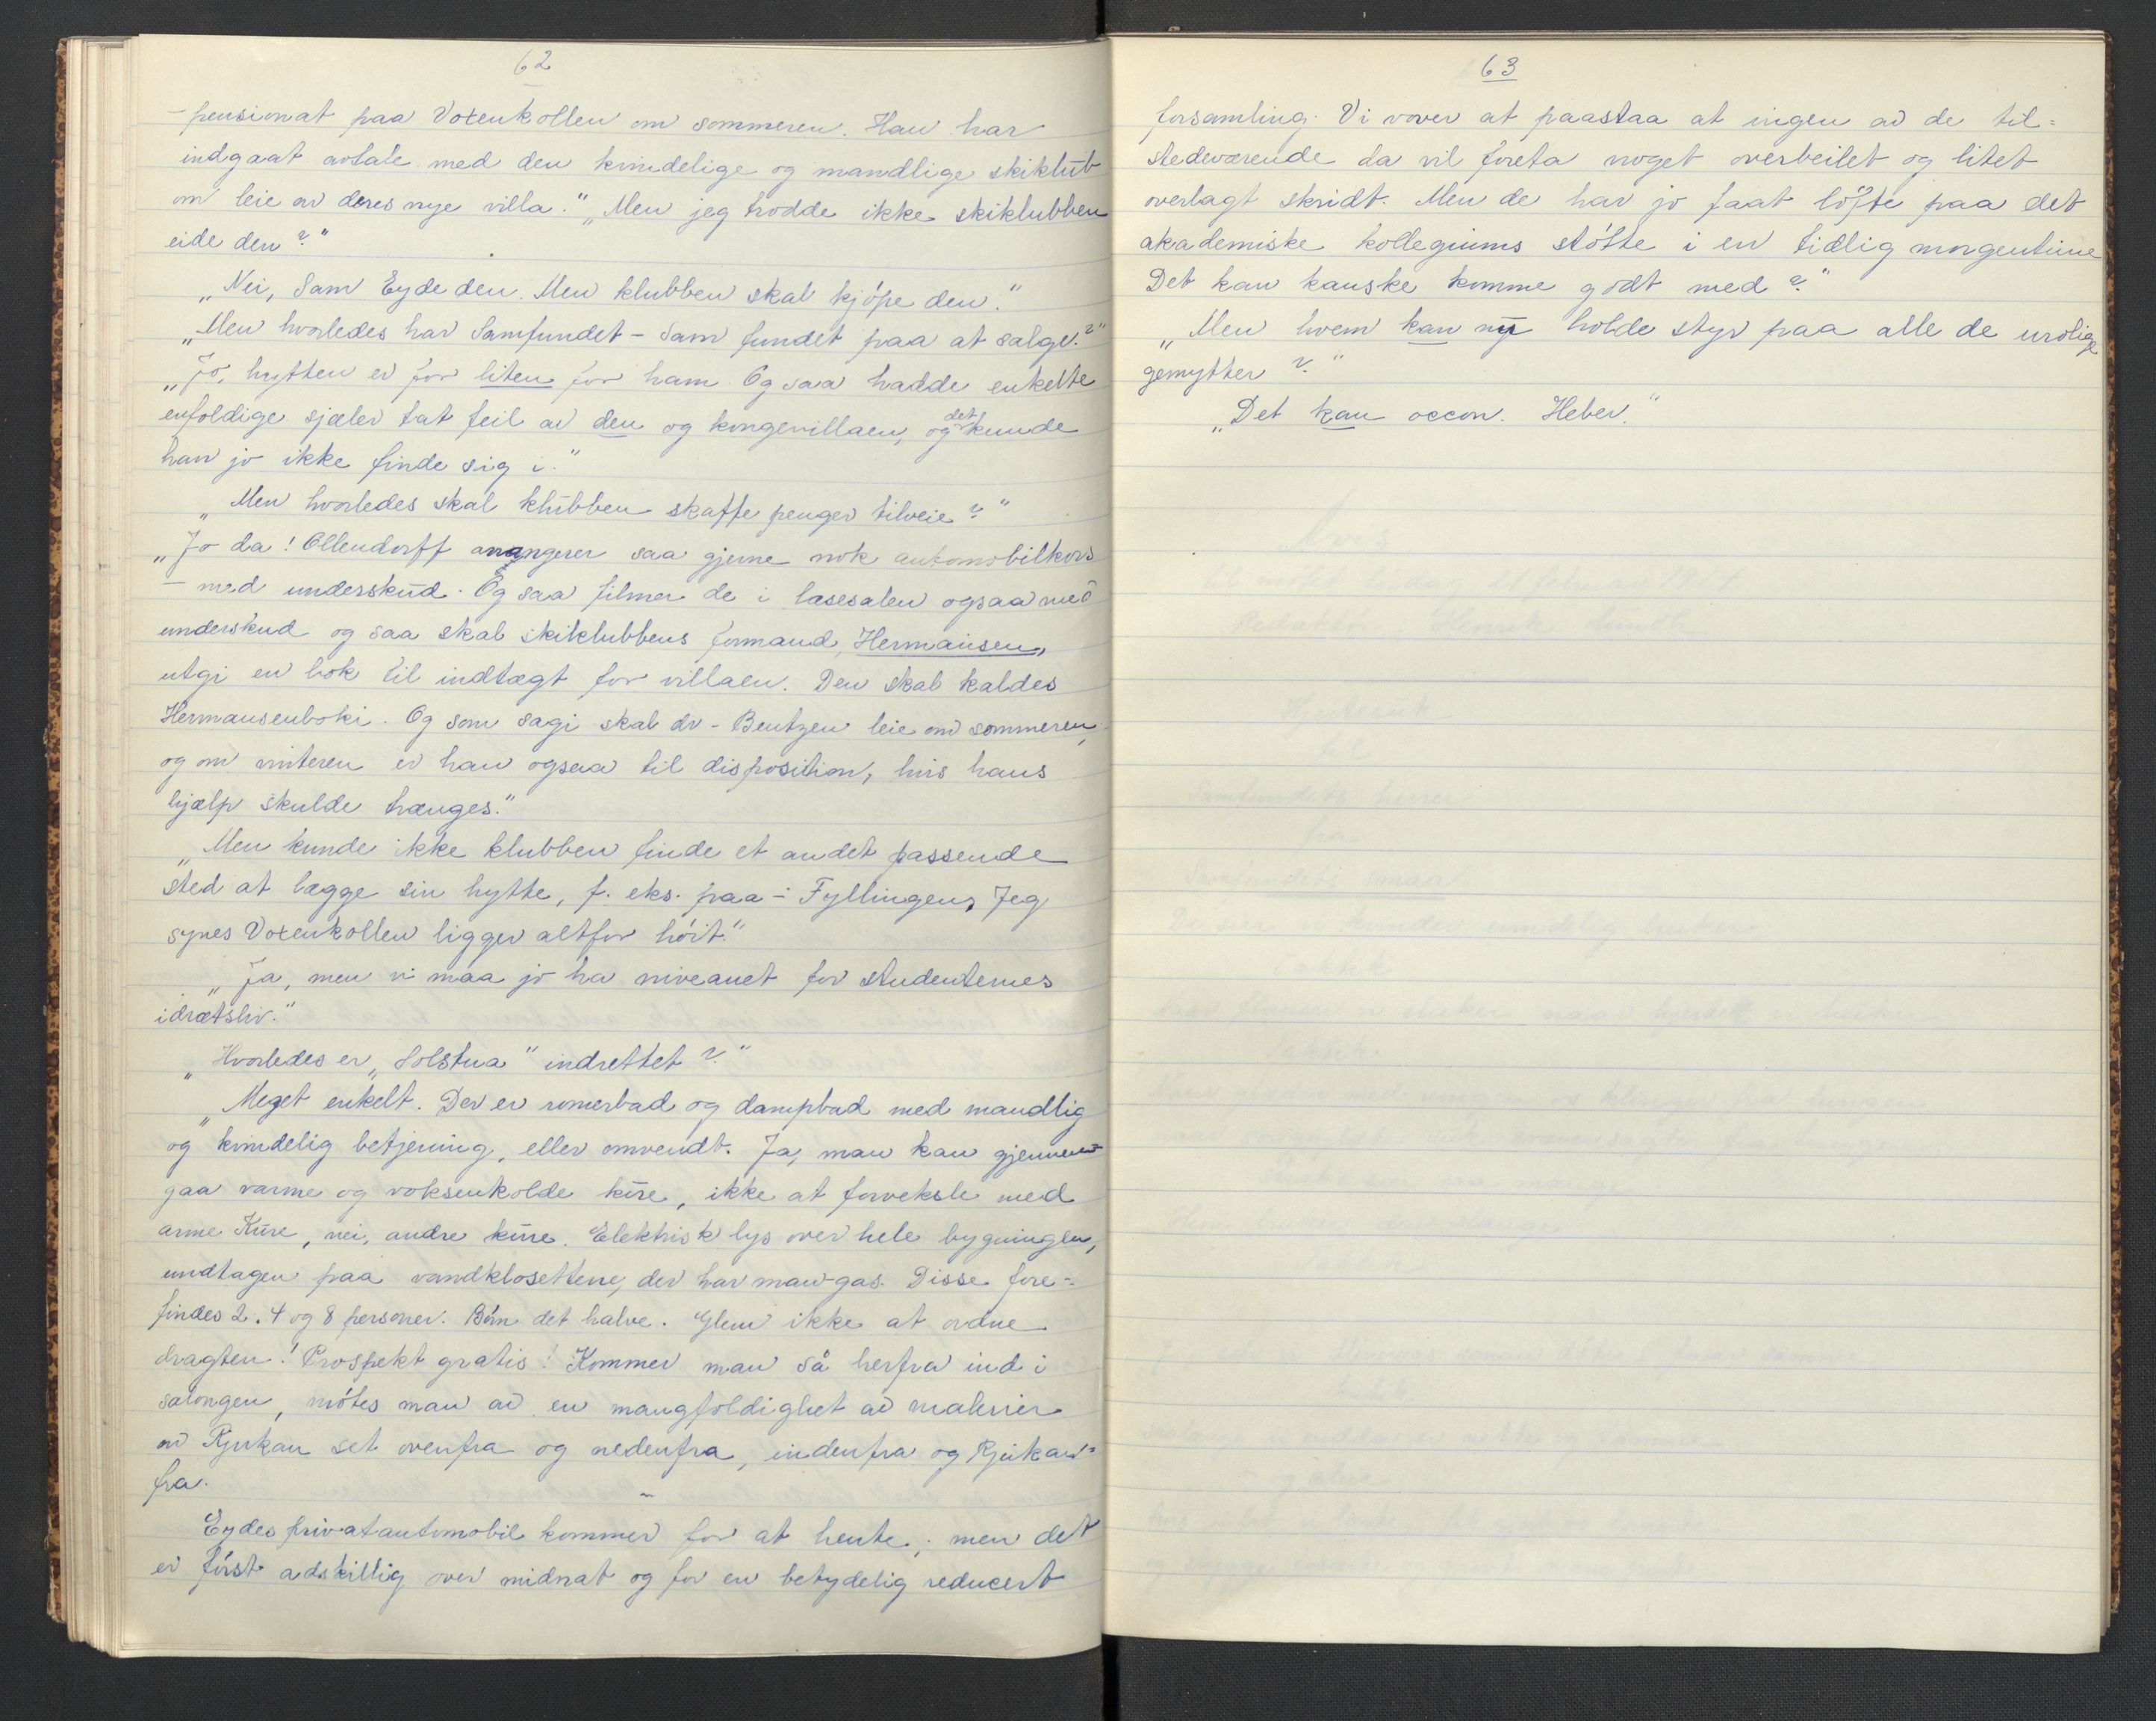 62
- pensionat paa Voxenkollen om sommeren. Han har
indgaat avtale med den kvindelige og mandlige skiklub
om leie av deres nye villa." „Men jeg trodde ikke skiklubben
eide den?"
„Nei, Sam Eyde den. Men klubben skal kjøpe den."
„Men hvorledes har Samfundet - Sam fundet paa at sælge?"
„Jo, hytten er for liten for ham. Og saa hadde enkelte
enfoldige sjæler tat feil av den og kongevillaen, og det kunde
han jo ikke finde sig i."
„Men hvorledes skal klubben skaffe penger tilveie?"
„Jo da! Ollendorff arrangerer saa gjerne nok automobilkors
- med underskud. Og saa filmer de i læsesalen ogsaa med
underskud og saa skal skiklubbens formand, Hermansen,
utgi en bok til indtægt for villaen. Den skal kaldes
Hermansenboki. Og som sagt skal dr - Bentzen leie om sommeren,
og om vinteren er han ogsaa til disposition, hvis hans
hjælp skulde trænges."
„Men kunde ikke klubben finde et andet passende
sted at lægge sin hytte, f. eks. paa - Fyllingen, Jeg
synes Voxenkollen ligger altfor høit."
„Ja, men vi maa jo ha niveauet for studenternes
idrætsliv."
„Hvorledes er „Solstua" indrettet?"
„Meget enkelt. Der er romerbad og dampbad med mandlig
og kvindelig betjening, eller omvendt. Ja, man kan gjennem-
gaa varme og voksenkolde kure, ikke at forveksle med
arme Kure, nei, andre kure. Elektrisk lys over hele bygningen,
undtagen paa vandklosettene, der har man gas. Disse fore-
findes 2. 4 og 8 personer. Børn det halve. Glem ikke at ordne
dragten! Prospekt gratis! Kommer man så herfra ind i
salongen, møtes man av en mangfoldighet av malerier
av Rjukan set ovenfra og nedenfra, indenfra og Rjukan-
fra.
Eydes privatautomobil kommer for at hente; men det
er først adskillig over midnat og for en betydelig reducert
63
forsamling. Vi vover at paastaa at ingen av de til-
stedeværende da vil foreta noget overbeilet og litet
overlagt skridt. Men de har jo faat løfte paa det
akademiske kollegiums støtte i en tidlig morgentime
Det kan kanske komme godt med?"
„Men hvem kan nu holde styr paa alle de urolige
gemytter?"
„Det kan oecon. Heber."